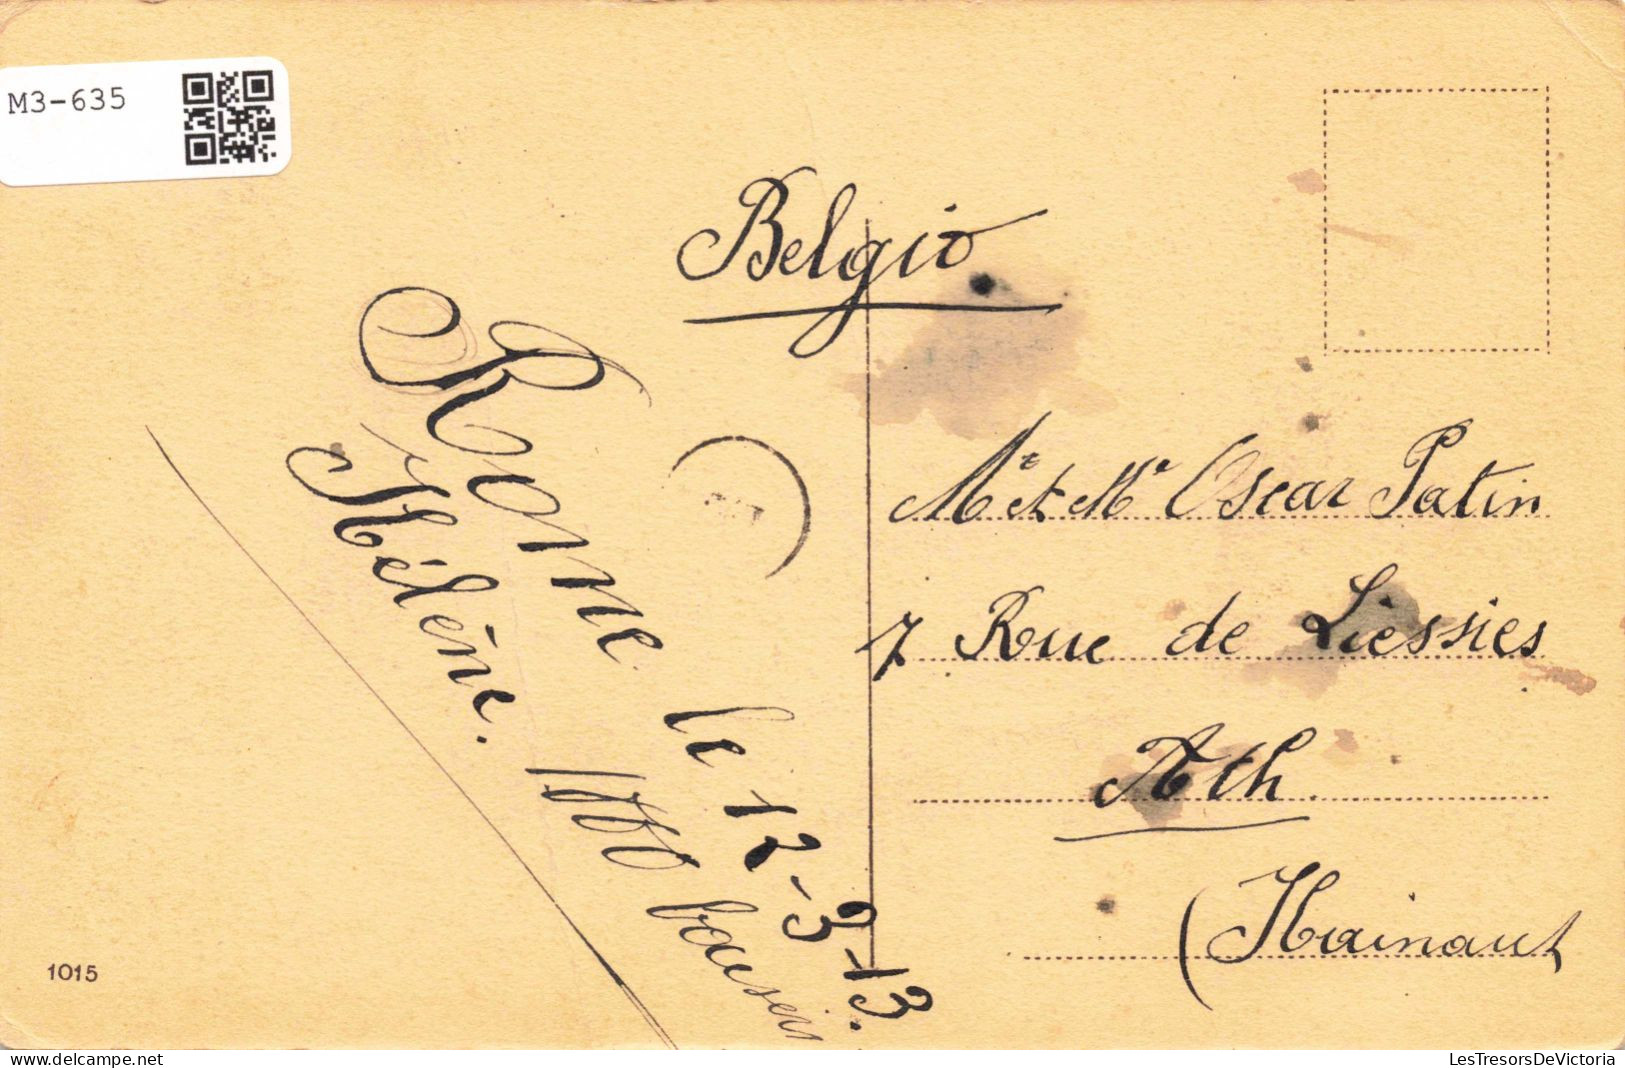 M3-635
Belgio
Rome le 12-3-913.
Hélène. 1000 baisers
Mr et Me Oscar Patin
7 Rue de Liessies
Ath.
(Hainaut
1015
LesTresorsDeVictoria